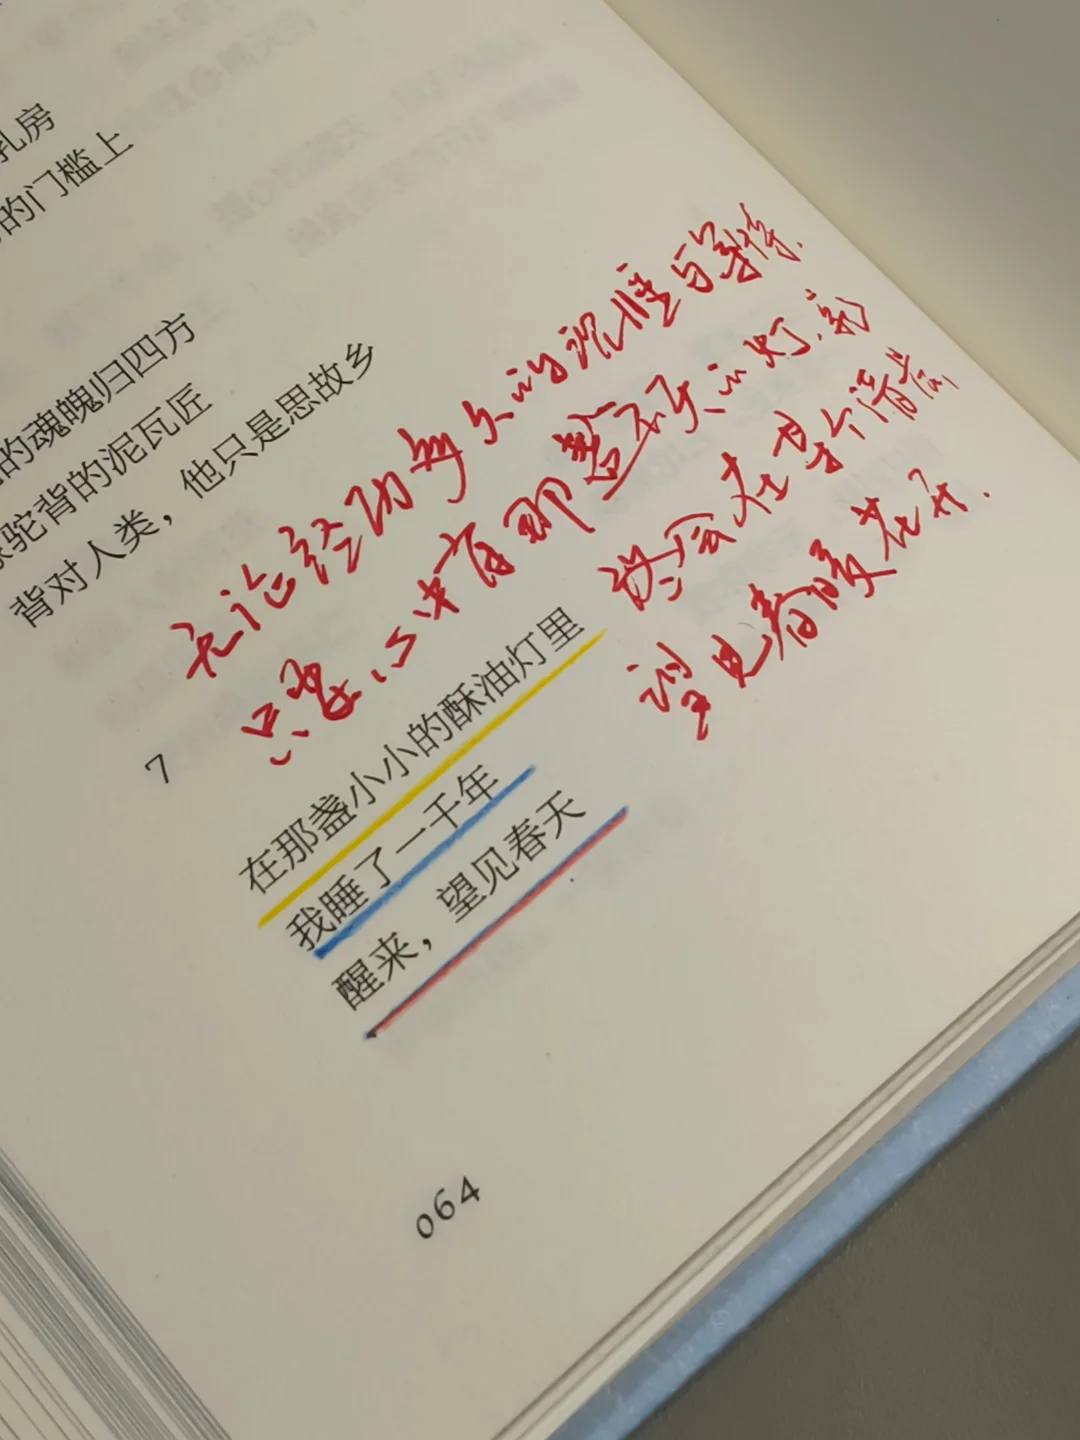 乳房
的门槛上
的魂魄归四方
驼背的泥瓦匠
背对人类，他只是思故乡
无论经历多久的沉睡与等待，
只要心中有那盏不灭的灯，就
终会在某个清晨
望见春暖花开.
7
在那盏小小的酥油灯里
我睡了一千年
醒来，望见春天
064